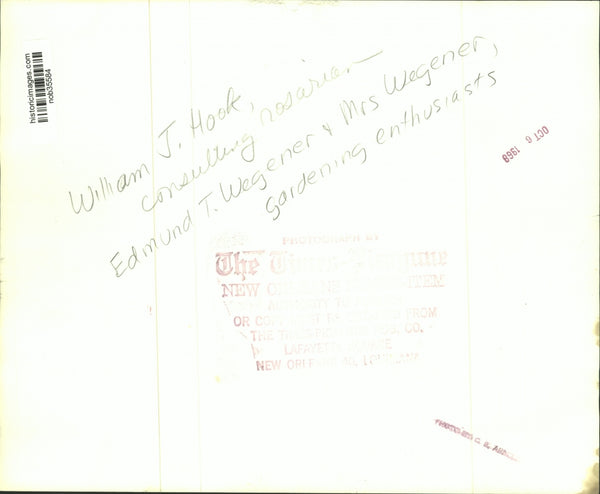 historicimages.com
nob35584
William J. Hook,
consulting rosarian
Edmund T. Wegener & Mrs Wegener,
gardening enthusiasts
OCT 6 1968
PHOTOGRAPH BY
The Times-Picayune
NEW ORLEANS STATES-ITEM
AUTHORITY TO
OR FROM
THE TIMES-PICAYUNE PUB. CO.
LAFAYETTE SQUARE
NEW ORLEANS 40, LOUISIANA